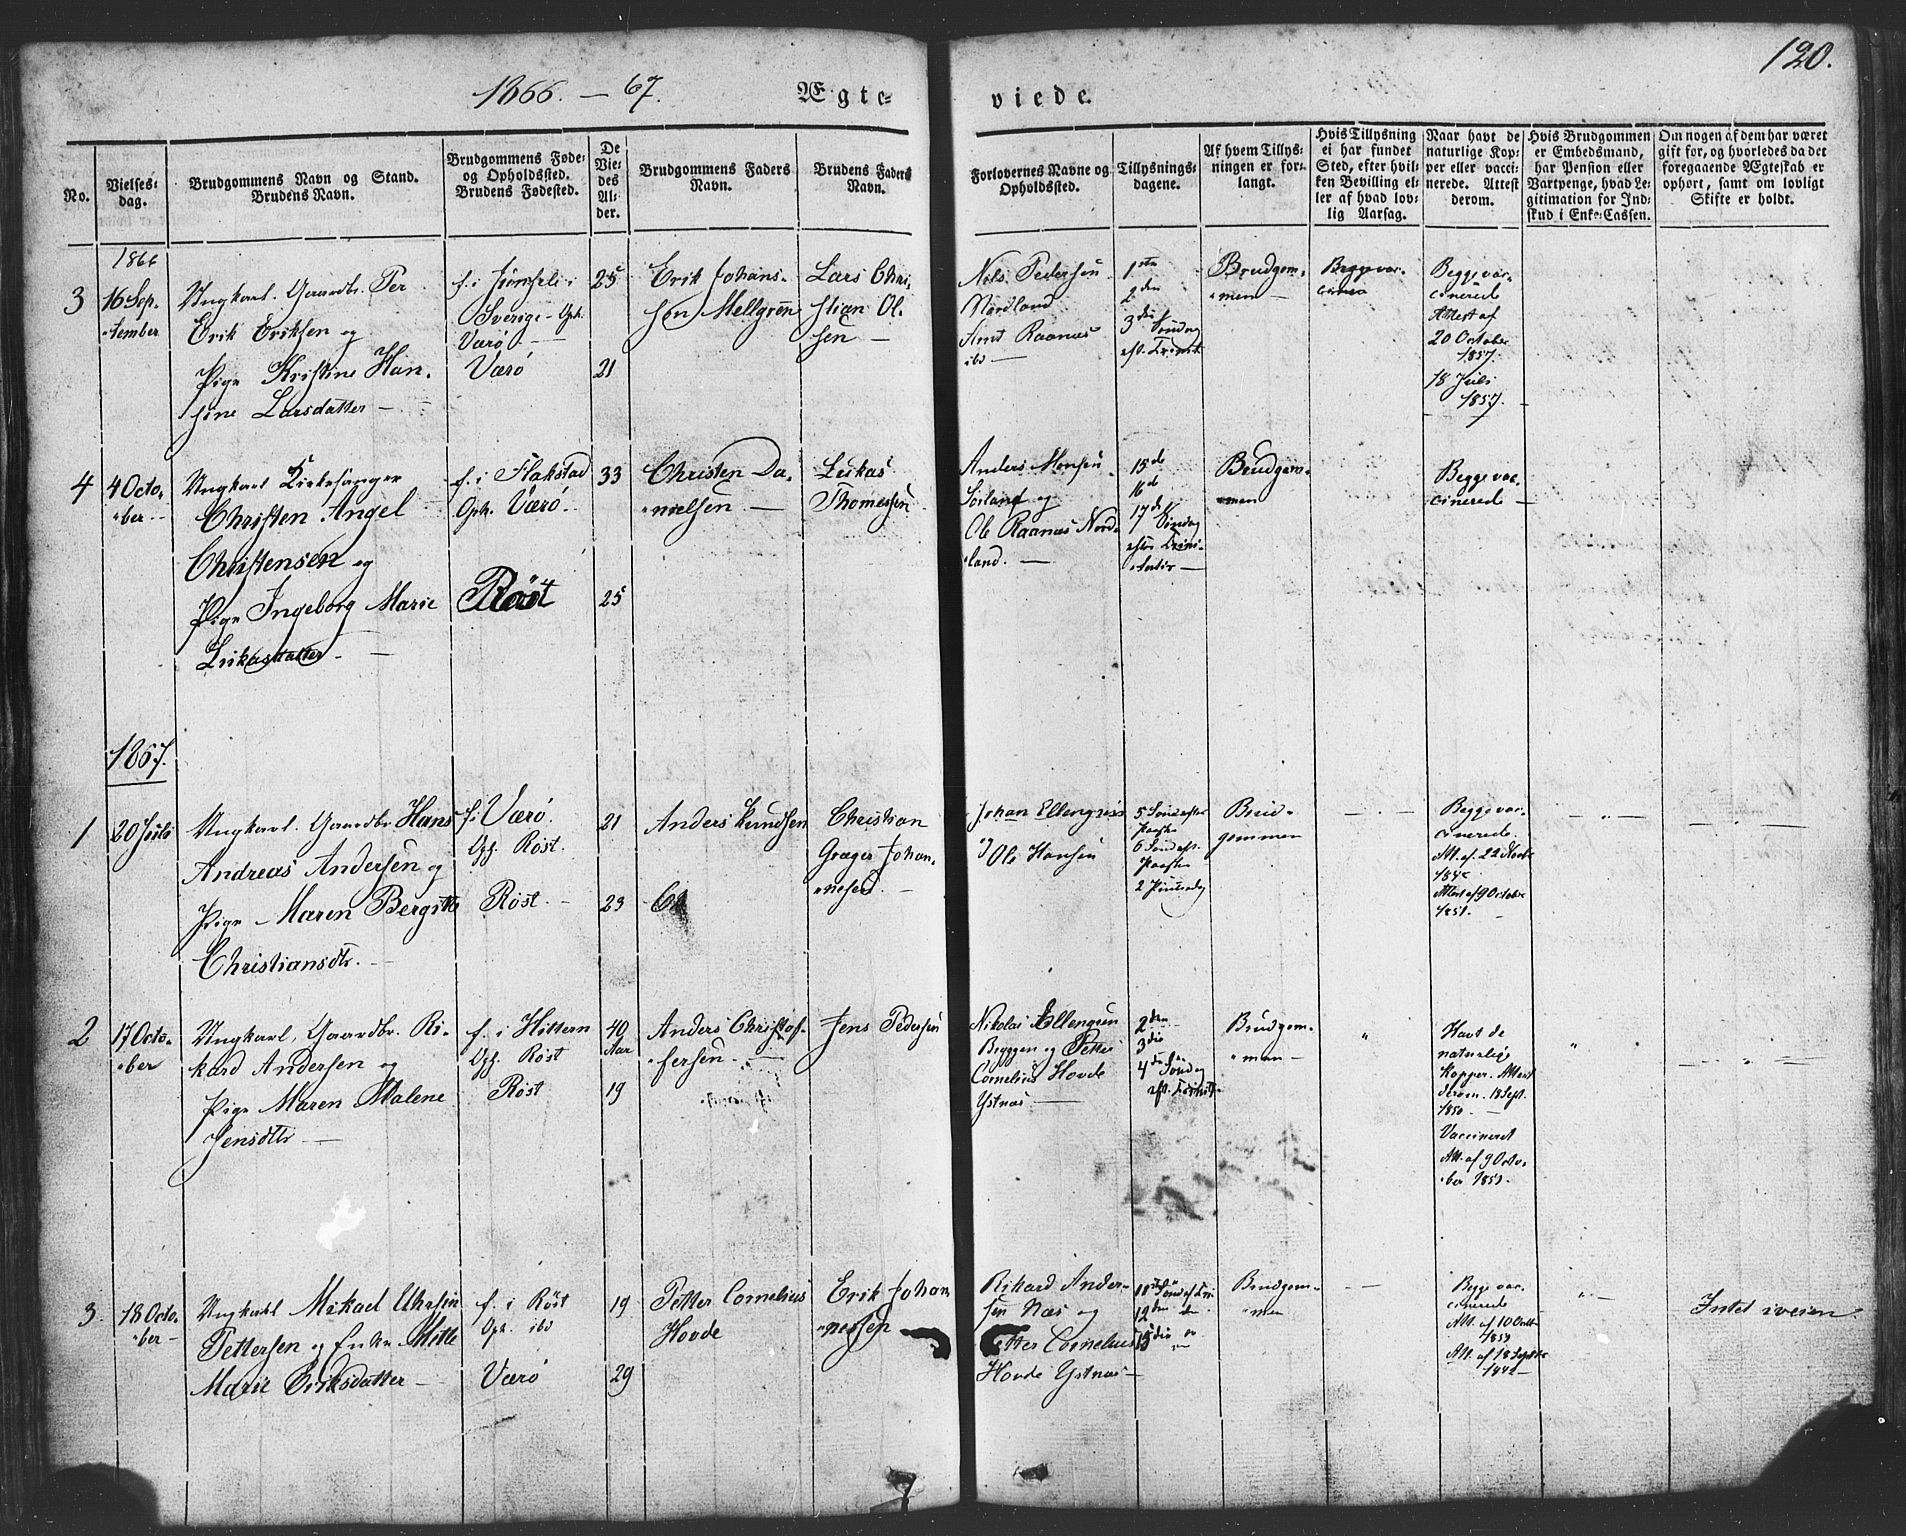 120.
1866. — 67.
Ægte-
viede.
No.
Vielses-
dag.
Brudgommens Navn og Stand.
Brudens Navn.
Brudgommens Føde-
og Opholdssted.
Brudens Fødested.
De
Vie-
des
Al-
der.
Brudgommens Faders
Navn.
Brudens Faders
Navn.
Forlovernes Navne og
Opholdssted.
Tillysnings-
dagene.
Af hvem Tillys-
ningen er for-
langt.
Hvis Tillysning
ei har fundet
Sted, efter hvil-
ken Bevilling el-
ler af hvad lov-
lig Aarsag.
Naar havt de
naturlige Kop-
per eller vacci-
nerede. Attest
derom.
Hvis Brudgommen
er Embedsmand,
har Pension eller
Vartpenge, hvad Le-
gitimation for Ind-
skud i Enke-Cassen.
Om nogen af dem har været
gift før, og hvorledes da det
foregaaende Ægteskab er
ophørt, samt om lovligt
Skifte er holdt.
1866
3
16 Sep-
tember
Ungkarl. Gaardbr. Per
Erik Eriksen og
Pige Kristine Han-
sine Larsdatter —
f. i
Sverige - Oph.
Værø. —
Værø
25
21
Erik Johans-
sen Mellgren
Lars Chri-
stian Ol-
sen —
Nils Pedersen
Nordland
Amt Raanæs
ibd —
1ste
2den
3die Søndag
eft. Trinit
Brudgom-
men —
Beggevac-
cinerede
Attest af
20 October
1857.
18 Juli
1857.
4
4 Octo-
ber —
Ungkarl Kirkesanger
Christen Angel
Christensen og
Pige Ingeborg Marie
Lukasdatter —
f. i Flakstad
Oph. Værø.
Røst
33
25
Christen Da-
nielsen —
Lukas
Thomessen
Anders Monsen
Sørland og
Ole Raanæs Nord-
land. —
15de
16de
17de Søndag
efter Trini-
tatis —
Brudgom-
men
Begge vac-
cinerede
1867.
1
20 Juli
Ungkarl. Gaardbr. Hans
Andreas Andersen og
Pige Maren Bergitte
Christiansdtr. —
f. i Værø.
Oph. Røst.
Røst. —
21
23
Anders Knudsen
Christian
Græger Johan-
nesen. —
Johan Ellengsen
og Ole Hansen
5 Sønd efter
Paaske
6 Sønd eft.
Paaske
2 Pintsedag
Brud-
gommen
Begge vac-
cinerede.
Att. af. 22
Attest af 9 October
1851.
2
17 Octo-
ber
Ungkarl, Gaardbr. Ri-
kard Andersen og
Pige Maren Malene
Jensdtr —
f. i Hittern
Oph. Røst
Røst
40
Aar
19
Anders Christof-
fersen. —
Jens Pedersen
Nikolai Ellengsen
Byggen og Petter
Cornelius Hovde
Ystnæs —
2den
3die
4de Søndag
eft. Trinit.
Brudgom-
men —
Havt de
naturlige
Kopper. Attest
derom. 18 Sept.
1850.
Vaccineret
Att. af 9 Octo-
ber 1851.
3.
18 Octo-
ber —
Ungkarl Mikael
Pettersen og Enke Mille
Marie Eriksdatter —
f. i Røst
Oph. ibd
Værø
19
29
Petter Cornelius
Hovde
Erik Johan-
nessen
Rikard Ander-
sen Næs og
Petter Cornelius
Hovde Ystnæs —
Brudgom-
men
Begge vac-
cinerede
Att. af 10 Octb
1859
Att. af 18 Septbr
Intet iveien.